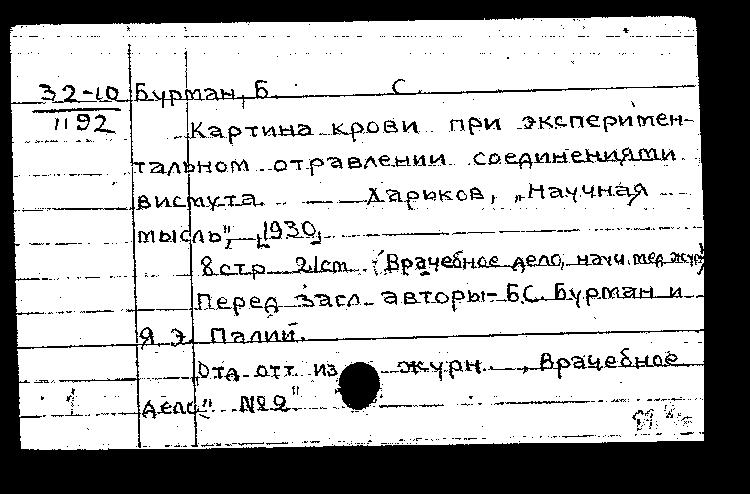 32-10 Бурман, Б. С.
1192
Картина крови при эксперимен-
тальном отравлении соединениями
висмута. Харьков, „Научная
мысль", [1930]
8 стр. 21 cm. (Врачебное дело, научн. мед. журн)
Перед загл. авторы- Б.С. Бурман и
Я. Э. Палий.
Отд. отт. из журн. „Врачебное
дело" №2"
1